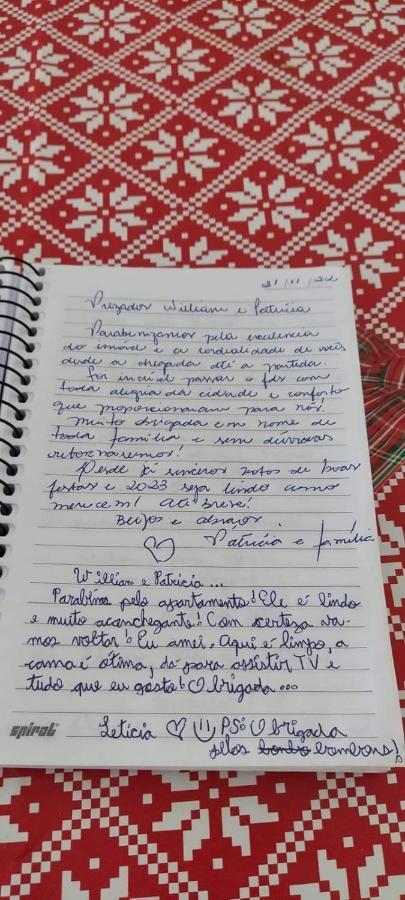 21/11/22
Prezados William e Patrícia
Parabenizamos pela excelencia
do imóvel e a cordialidade de vocês
desde a chegada até a partida.
Foi incrível passar o fds com
toda alegria da cidade e conforto
que proporcionaram para nós.
Muito obrigada em nome de
toda família e sem dúvidas
retornaremos!
Desde já sinceros votos de boas
festas e 2023 seja lindo como
merecem! Até breve!
Beijos e abraços.
Patrícia e família
William e Patrícia...
Parabéns pelo apartamento! Ele é lindo
e muito aconchegante! Com certeza va-
mos voltar! Eu amei. Aqui é limpo, a
cama é ótima, dá para assistir TV e
tudo que eu gosto! Obrigada...
Leticia PS: Obrigada
pelos bombons!
spiral